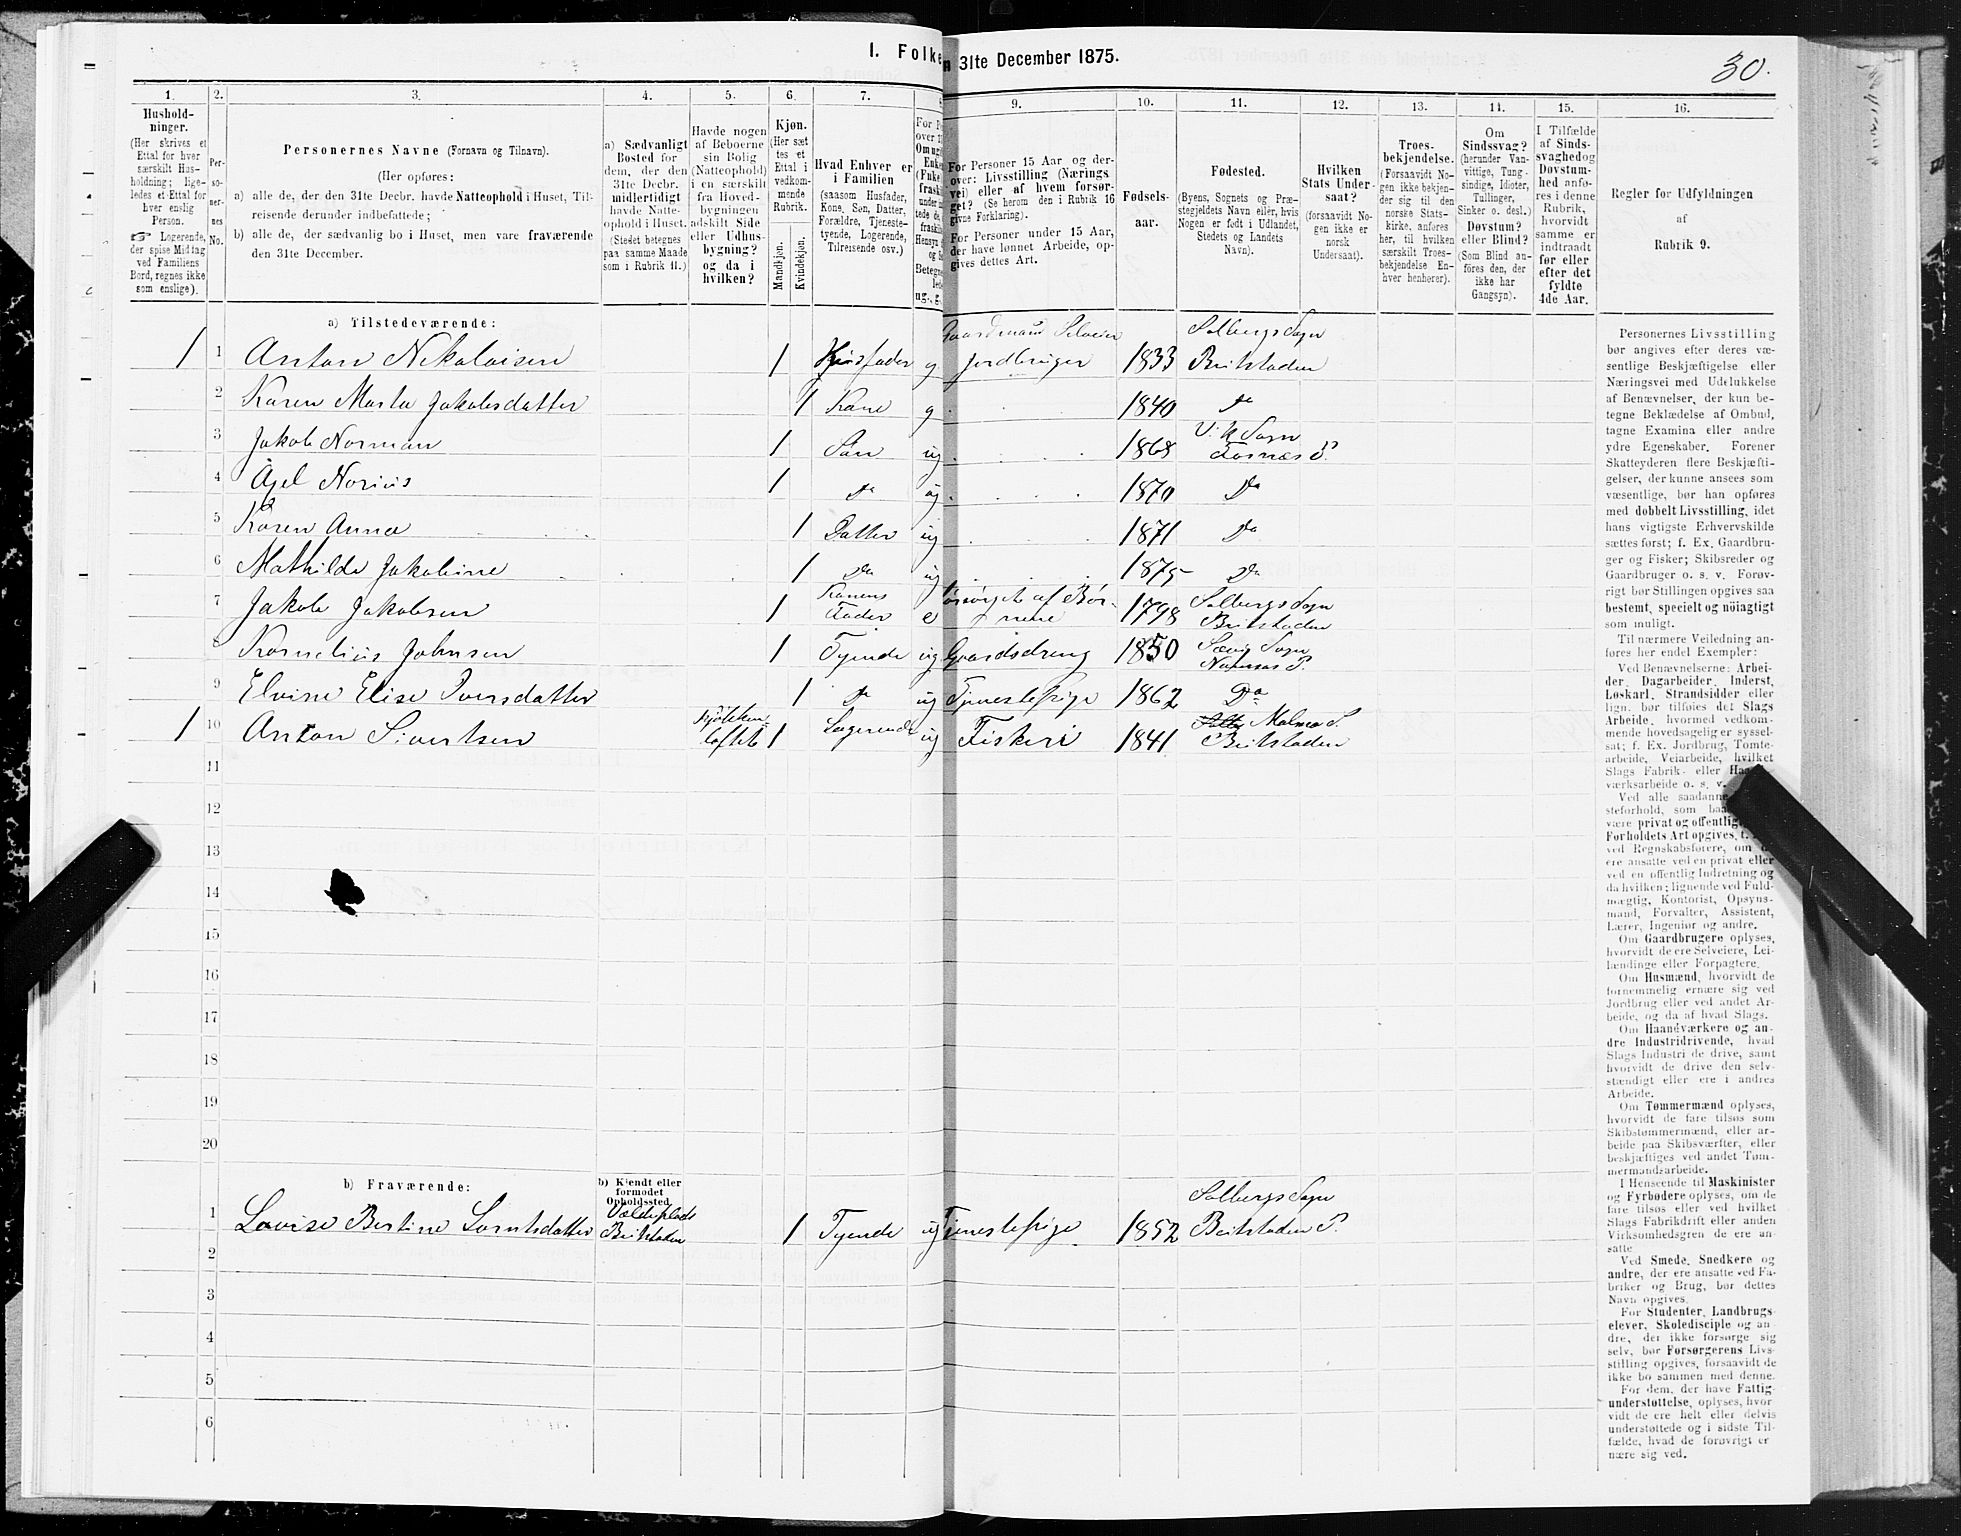 I. Folke
n 31te December 1875.
30.
1.
2.
3.
4.
5.
6.
7.
8
9.
10.
11.
12.
13.
14.
15.
16.
Hushold-
ninger.
(Her skrives et
Ettal for hver
særskilt Hus-
holdning; lige-
ledes et Ettal for
hver enslig
Person.
☞ Logerende,
der spise Middag
ved Familiens
Bord, regnes ikke
som enslige).
Per-
so-
ner-
nes
No.
Personernes Navne (Fornavn og Tilnavn).
(Her opføres:
a) alle de, der den 31te Decbr. havde Natteophold i Huset, Til-
reisende derunder indbefattede;
b) alle de, der sædvanlig bo i Huset, men vare fraværende
den 31te December.
a) Sædvanligt
Bosted for
dem, der den
31te Decbr.
midlertidigt
havde Natte-
ophold i Huset.
(Stedet betegnes
paa samme Maade
som i Rubrik 11.)
Havde nogen
af Beboerne
sin Bolig
(Natteophold)
i en særskilt
fra Hoved-
bygningen
adskilt Side
eller Udhus-
bygning?
og da i
hvilken?
Kjøn.
(Her sæt
tes et
Ettal i
vedkom-
mende
Rubrik.
Mandkjøn.
Kvindekjøn.
Hvad Enhver er
i Familien
(saasom Husfader,
Kone, Søn, Datter,
Forældre, Tjeneste-
tyende, Logerende,
Tilreisende osv.)
For P
over 1
Om ug
Enke
(Enke
fraski
under in
tede de,
fraskil
Hensyn
og S
Betegne
lede
ug., g.
For Personer 15 Aar og der-
over: Livsstilling (Nærings
vei) eller af hvem forsør-
get? (Se herom den i Rubrik 16
givne Forklaring).
For Personer under 15 Aar,
der have lønnet Arbeide, op-
gives dettes Art.
Fødsels-
aar.
Fødested.
(Byens, Sognets og Præ-
stegjeldets Navn eller, hvis
Nogen er født i Udlandet,
Stedets og Landets
Navn).
Hvilken
Stats Under-
saat?
(forsaavidt No-
gen ikke er
norsk
Undersaat).
Troes-
bekjendelse.
(Forsaavidt No-
gen ikke bekjen-
der sig til den
norske Stats-
kirke, anføres
her, til hvilken
særskilt Troes-
bekjendelse En-
hver henhører).
Om
Sindssvag?
(herunder Van-
vittige, Tung-
sindige, Idioter,
Tullinger,
Sinker o. desl.)
Døvstum?
eller Blind?
(Som Blind an-
føres den, der
ikke har
Gangsyn).
I Tilfælde
af Sinds-
svaghedog
Døvstum-
hed anfø-
res i denne
Rubrik,
hvorvidt
samme er
indtraadt
før eller
efter det
fyldte
4de Aar.
Regler for Udfyldningen
af
Rubrik 9.
a) Tilstedeværende:
1 1 Anton Nikolaisen 1 Husfader g Gaardmand Selveier Jordbruger 1833 Solbergs Sogn Beitstaden
2 Karen Marta Jakobsdatter 1 Kone g 1840 Do
3 Jakob Norman 1 Søn ug 1868 Vik Sogn Fosnæs P.
4 Axel Norius 1 Do ug 1870 Do
5 Karen Anna 1 Datter ug 1871 Do
6 Mathilde Jakobine 1 Do ug 1875 Do
7 Jakob Jakobsen 1 Konens Fader e forsørget af Børnene 1798 Solbergs Sogn Beitstaden
8 Kornelius Johnsen 1 Tyende ug Gaardsdreng 1850 Sævig Sogn P.
9 Elvine Elise Iversdatter 1 Do ug Tjenestepige 1862 Do
1 10 Anton Sivertsen Kjøkkenloftet 1 Logerende ug Fiskeri 1841 Malmo S. Beitstaden
11
12
13
14
15
16
17
18
19
20
b) Fraværende:
b) Kjendt eller
formodet
Opholdssted.
1 Lovise Bertine Lorntsdatter Beitstaden 1 Tyende ug Tjenestepige 1852 Solbergs Sogn Beitstaden P.
2
3
4
5
6
Personernes Livsstilling
bør angives efter deres væ-
sentlige Beskjæftigelse eller
Næringsvei med Udelukkelse
af Benævnelser, der kun be-
tegne Beklædelse af Ombud,
tagne Examina eller andre
ydre Egenskaber. Forener
Skatteyderen flere Beskjæfti-
gelser, der kunne ansees som
væsentlige, bør han opføres
med dobbelt Livsstilling, idet
hans vigtigste Erhvervskilde
sættes først; f. Ex. Gaardbru-
ger og Fisker; Skibsreder og
Gaardbruger o. s. v. Forøv-
rigt bør Stillingen opgives saa
bestemt, specielt og nøiagtigt
som muligt.
Til nærmere Veiledning an-
føres her endel Exempler:
Ved Benævnelserne: Arbei-
der, Dagarbeider, Inderst,
Løskarl, Strandsidder eller
lign. bør tilføies det Slags
Arbeide, hvormed vedkom-
mende hovedsagelig er syssel-
sat; f. Ex. Jordbrug, Tomte-
arbeide, Veiarbeide, hvilket
Slags Fabrik- eller Haa
værksarbeide o. s. v.
Ved alle saadanne
steforhold, som baa
være privat og offentlig
Forholdets Art opgives, t.
ved Regnskabsførere, om d
ere ansatte ved en privat eller
ved en offentlig Indretning og
da hvilken; lignende ved Fuld-
mægtig, Kontorist, Opsyns-
mand, Forvalter, Assistent,
Lærer, Ingeniør og andre.
Om Gaardbrugere oplyses,
hvorvidt de ere Selveiere, Lei-
lændinge eller Forpagtere.
Om Husmænd, hvorvidt de
fornemmelig ernære sig ved
Jordbrug eller ved andet Ar-
beide, og da af hvad Slags.
Om Haandværkere og an-
dre Industridrivende, hvad
Slags Industri de drive, samt
hvorvidt de drive den selv-
stændigt eller ere i andres
Arbeide.
Om Tømmermænd oplyses,
hvorvidt de fare tilsøs som
Skibstømmermænd, eller ar-
beide paa Skibsværfter, eller
beskjæftiges ved andet Tøm-
mermandsarbeide.
I Henseende til Maskinister
og Fyrbødere oplyses, om de
fare tilsøs eller ved hvilket
Slags Fabrikdrift eller anden
Virksomhedsgren de ere an-
satte
Ved Smede, Snedkere og
andre, der ere ansatte ved Fa-
briker og Brug, bør dettes
Navn opgives.
For Studenter, Landbrugs-
elever, Skoledisciple og an-
dre, der ikke forsørge sig
selv, bør Forsørgerens Livs-
stilling opgives, forsaavidt de
ikke bo sammen med denne.
For dem, der have Fattig-
understøttelse, oplyses, hvor
vidt de ere helt eller delvis
understøttede og i sidste Til-
fælde, hvad de forøvrigt er
nære sig ved.